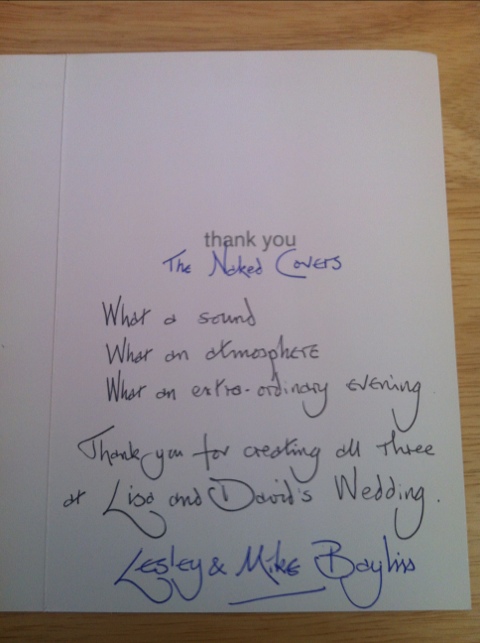 thank you
The Naked Covers
What a sound
What an atmosphere
What an extra-ordinary evening.
Thank you for creating all three
at Lisa and David's Wedding.
Lesley & Mike Bayliss